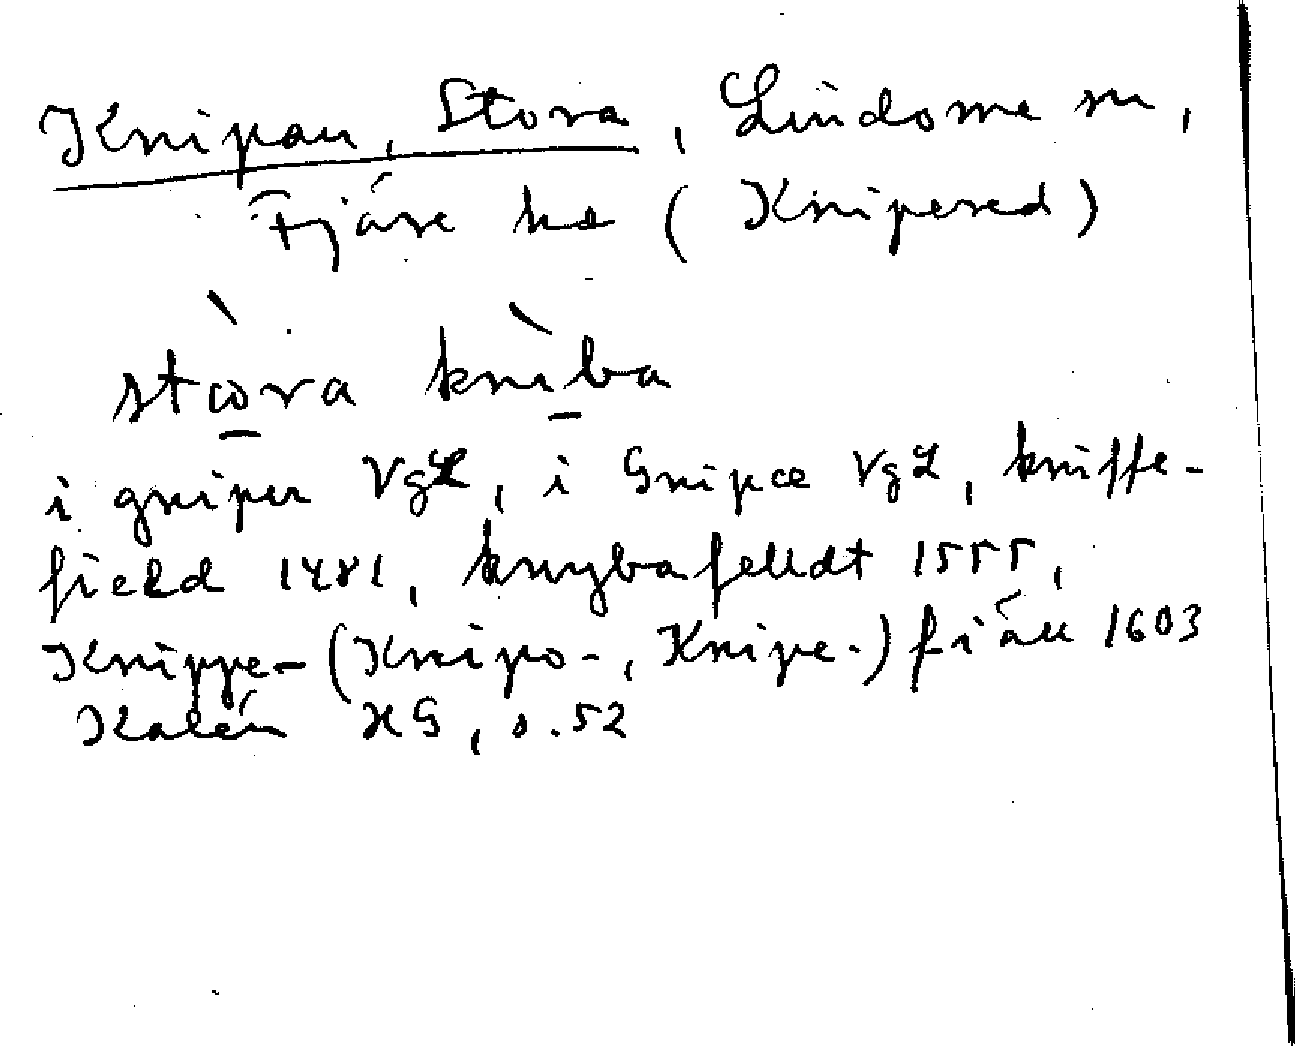 Knipan, Stora, Lindome sn,
Fjäre hd (Knipered)
stωra kniba
i gniper VgL, i Gnipce VgL, kniffe-
field 1481, knybafelldt 1555,
Knippe- (Knipo-, Knipe-) fiäll 1603
Kalén HG, s. 52